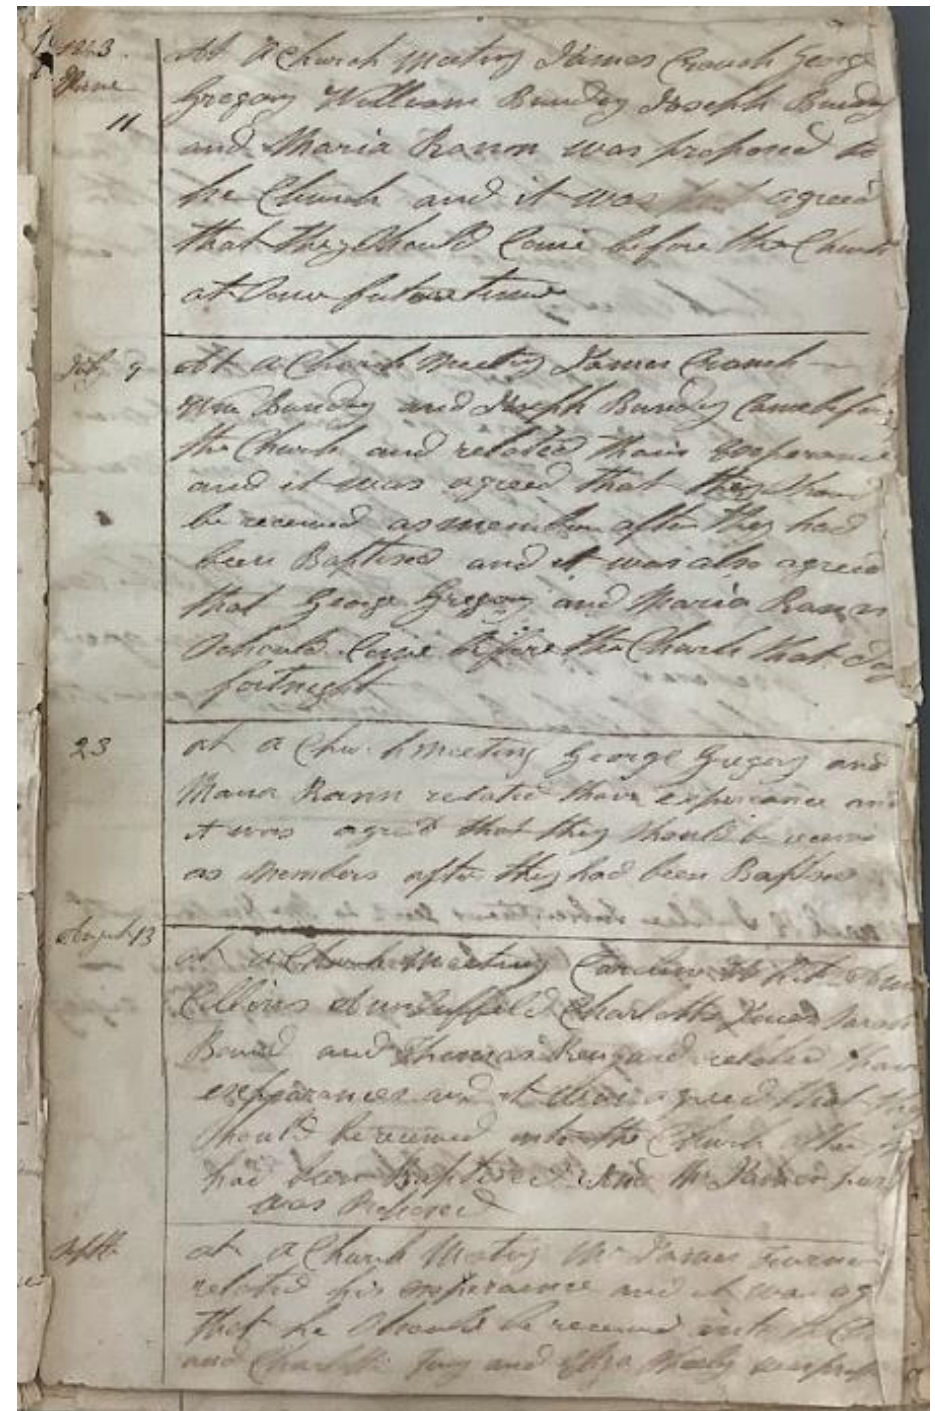 1843
June
11
At a Church Meeting James Crouch George
Gregory William Bundey Joseph Bundey
and Maria Rann was proposed to
he Church and it was agreed
that they Should Come before the Church
at Some future time
July 9
At a Church Meeting James Crouch
Wm Bundey and Joseph Bundey Came before
the Church and related thair
and it was agreed that they
be received as after they had
been Baptised and it was also agreed
that George Gregory and Maria Rann
Should Come before the Church that day
fortnight
23
at a Church meeting George Gregory and
Maria Rann related thair experiance and
it was agreed that they should be
as Members after they had been Baptised
August 13
at a Church Meeting
Collins Charlotte Sarah
and Thomas related thair
experances and it was agreed that they
Should be received into the Church after
had been Baptised And Mr James
was
at a Church Meeting Mr James
related his experiance and it was
that he Should be received into the
and Charlotte and